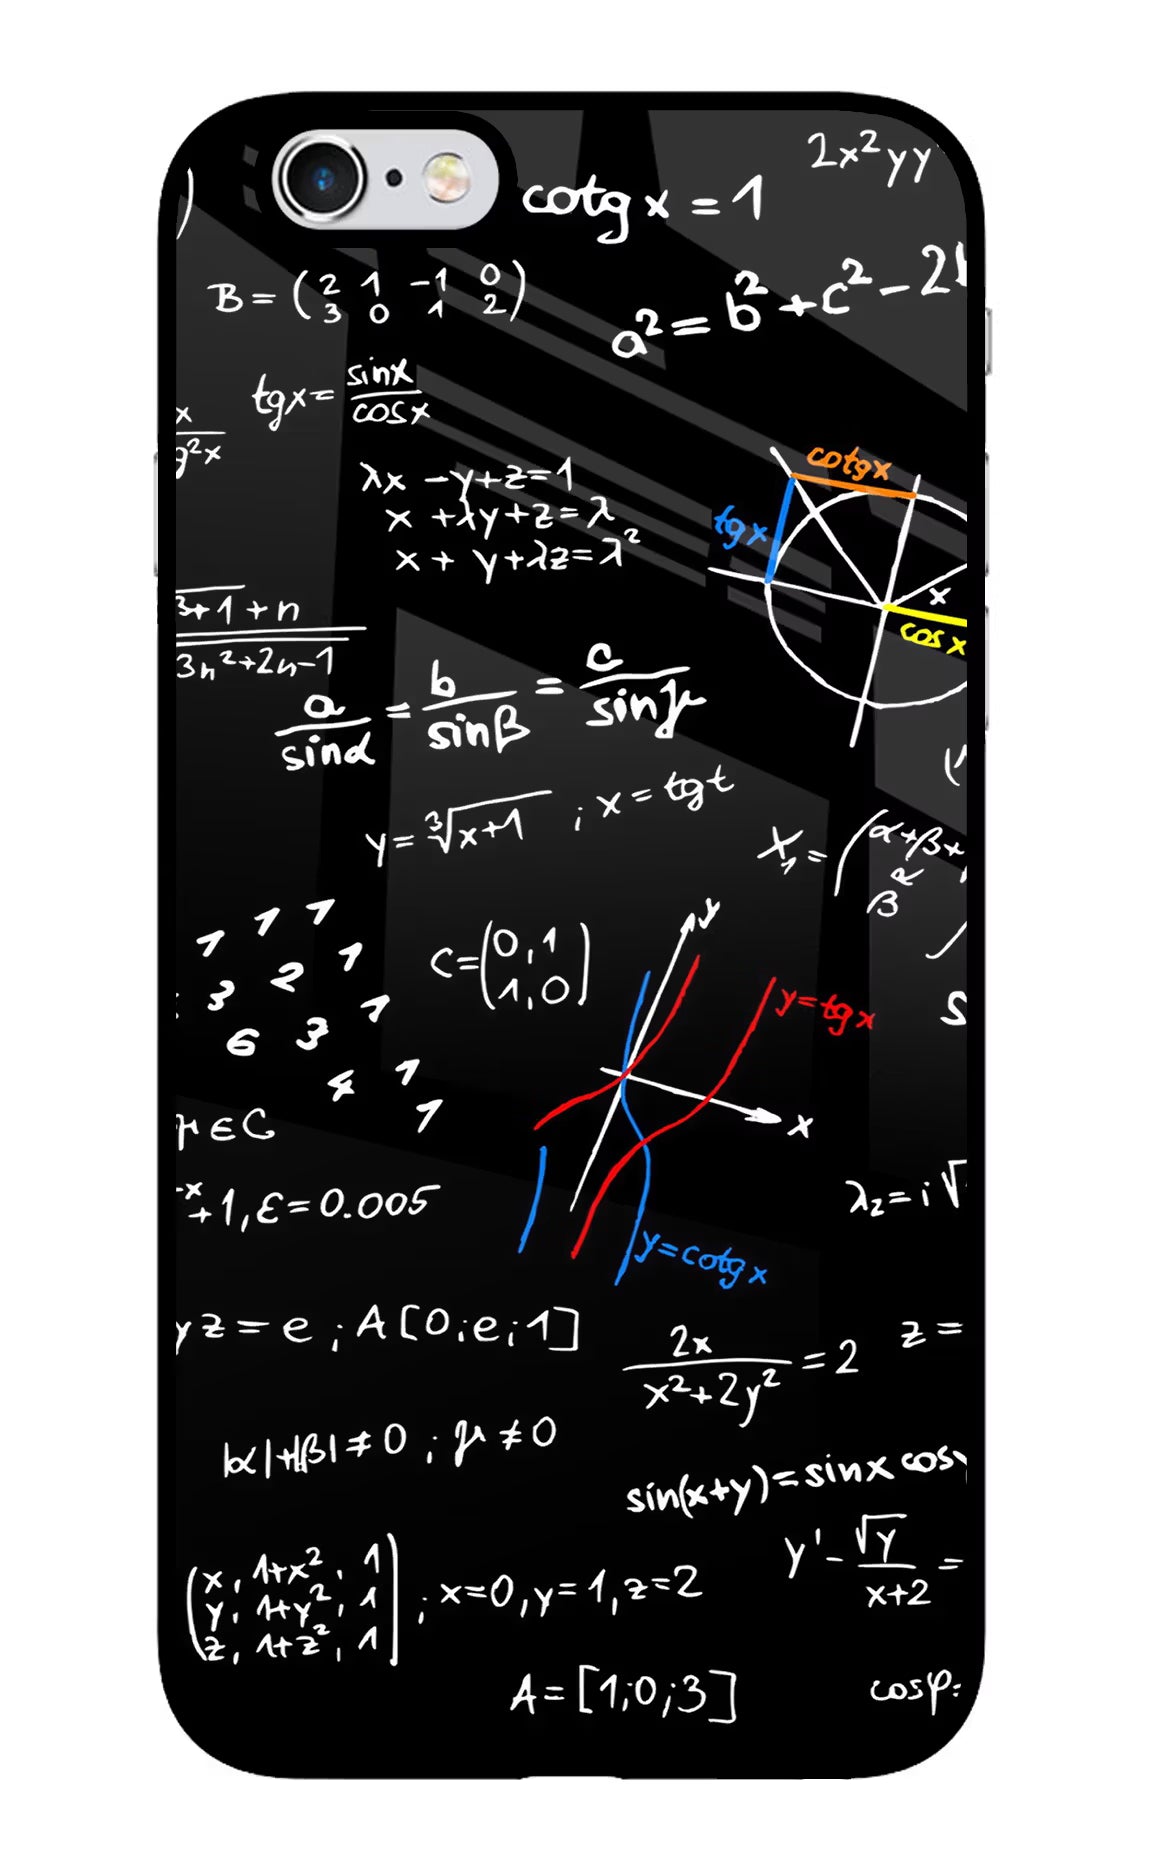 2x²yy
cotg x = 1
B = (2 1 -1 0
3 0 1 2)
a² = b² + c² - 2
tgx = sinx
cosx
x
g²x
λx - y + z = 1
x + λy + z = λ
x + y + λz = λ²
cotgx
tgx
x
cos x
3+1 + n
3n²+2n-1
a/sinα = b/sinβ = c/sinγ
y = ³√x+1 ; x = tgt
X₁ = (α+β+
β α
1 1 1
3 2 1
6 3 1
4 1
1
C = (0,1
1,0)
y
y=tgx
x
y=cotgx
μ∈C
-x
+1, ε = 0.005
λ₂ = i√
yz = e ; A[0;e;1]
2x
x²+2y² = 2
z =
|α|+|β| ≠ 0 ; μ ≠ 0
sin(x+y) = sinx cosy
y' - √y
x+2 =
(x, 1+x², 1
y, 1+y², 1
z, 1+z², 1) ; x=0, y=1, z=2
A = [1;0;3]
cosφ=